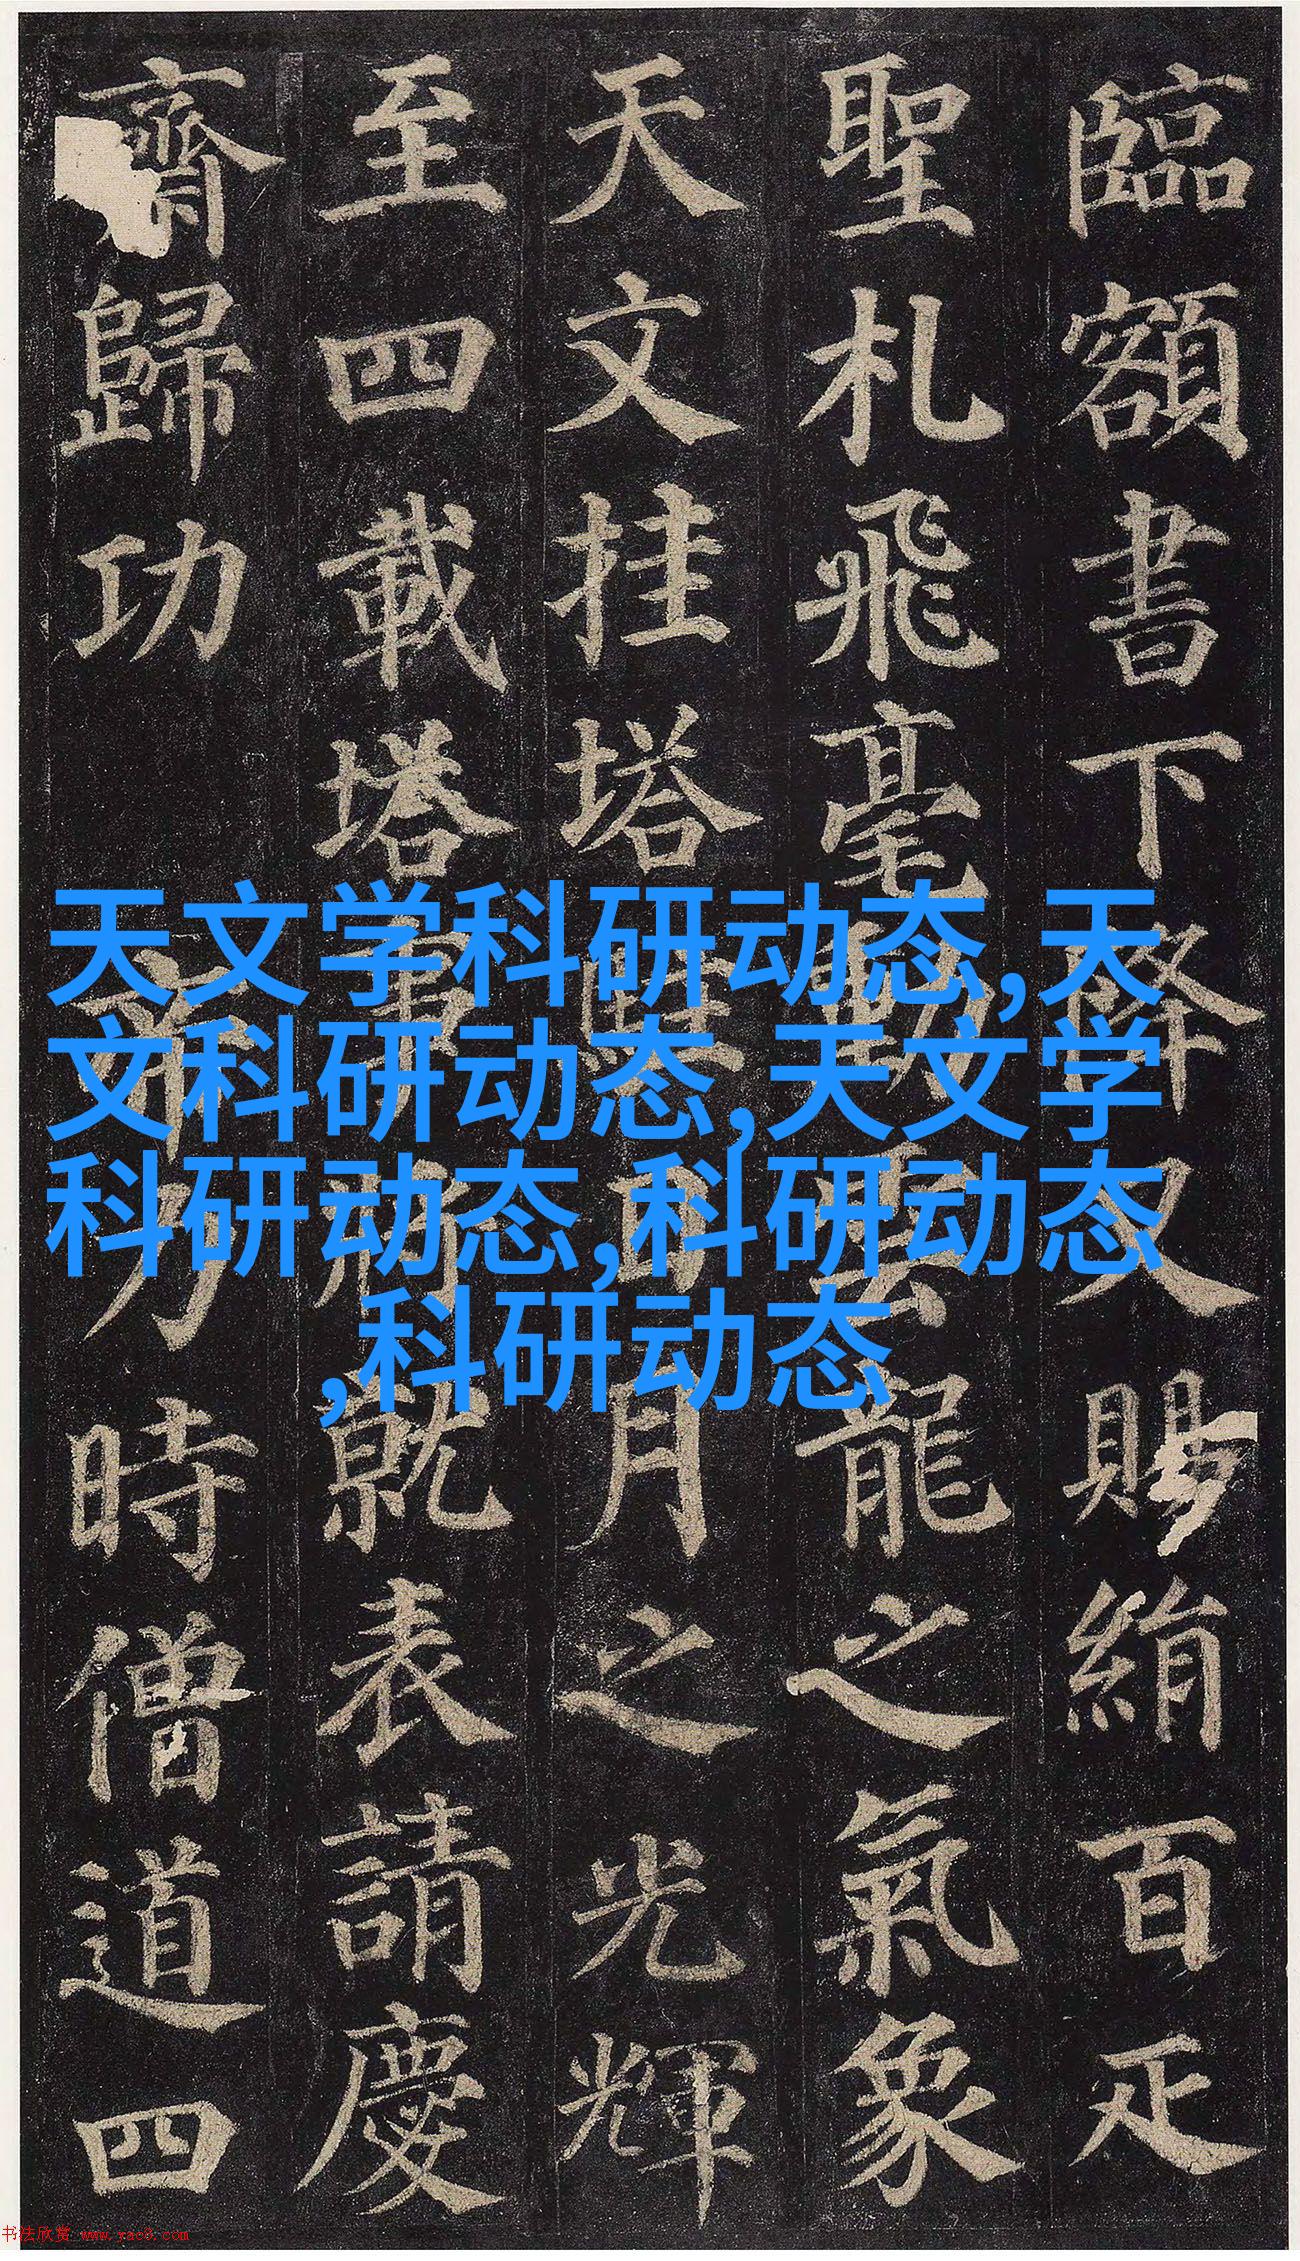 臨額書下降又賜絹百疋
聖札飛毫動雲龍之氣象
天文挂塔駐日月之光輝
至四載塔事將就表請慶
齋歸功 帝力時僧道四
天文学科研动态,天
文科研动态,天文学
科研动态,科研动态
,科研动态
书法欣赏 www.yac8.com